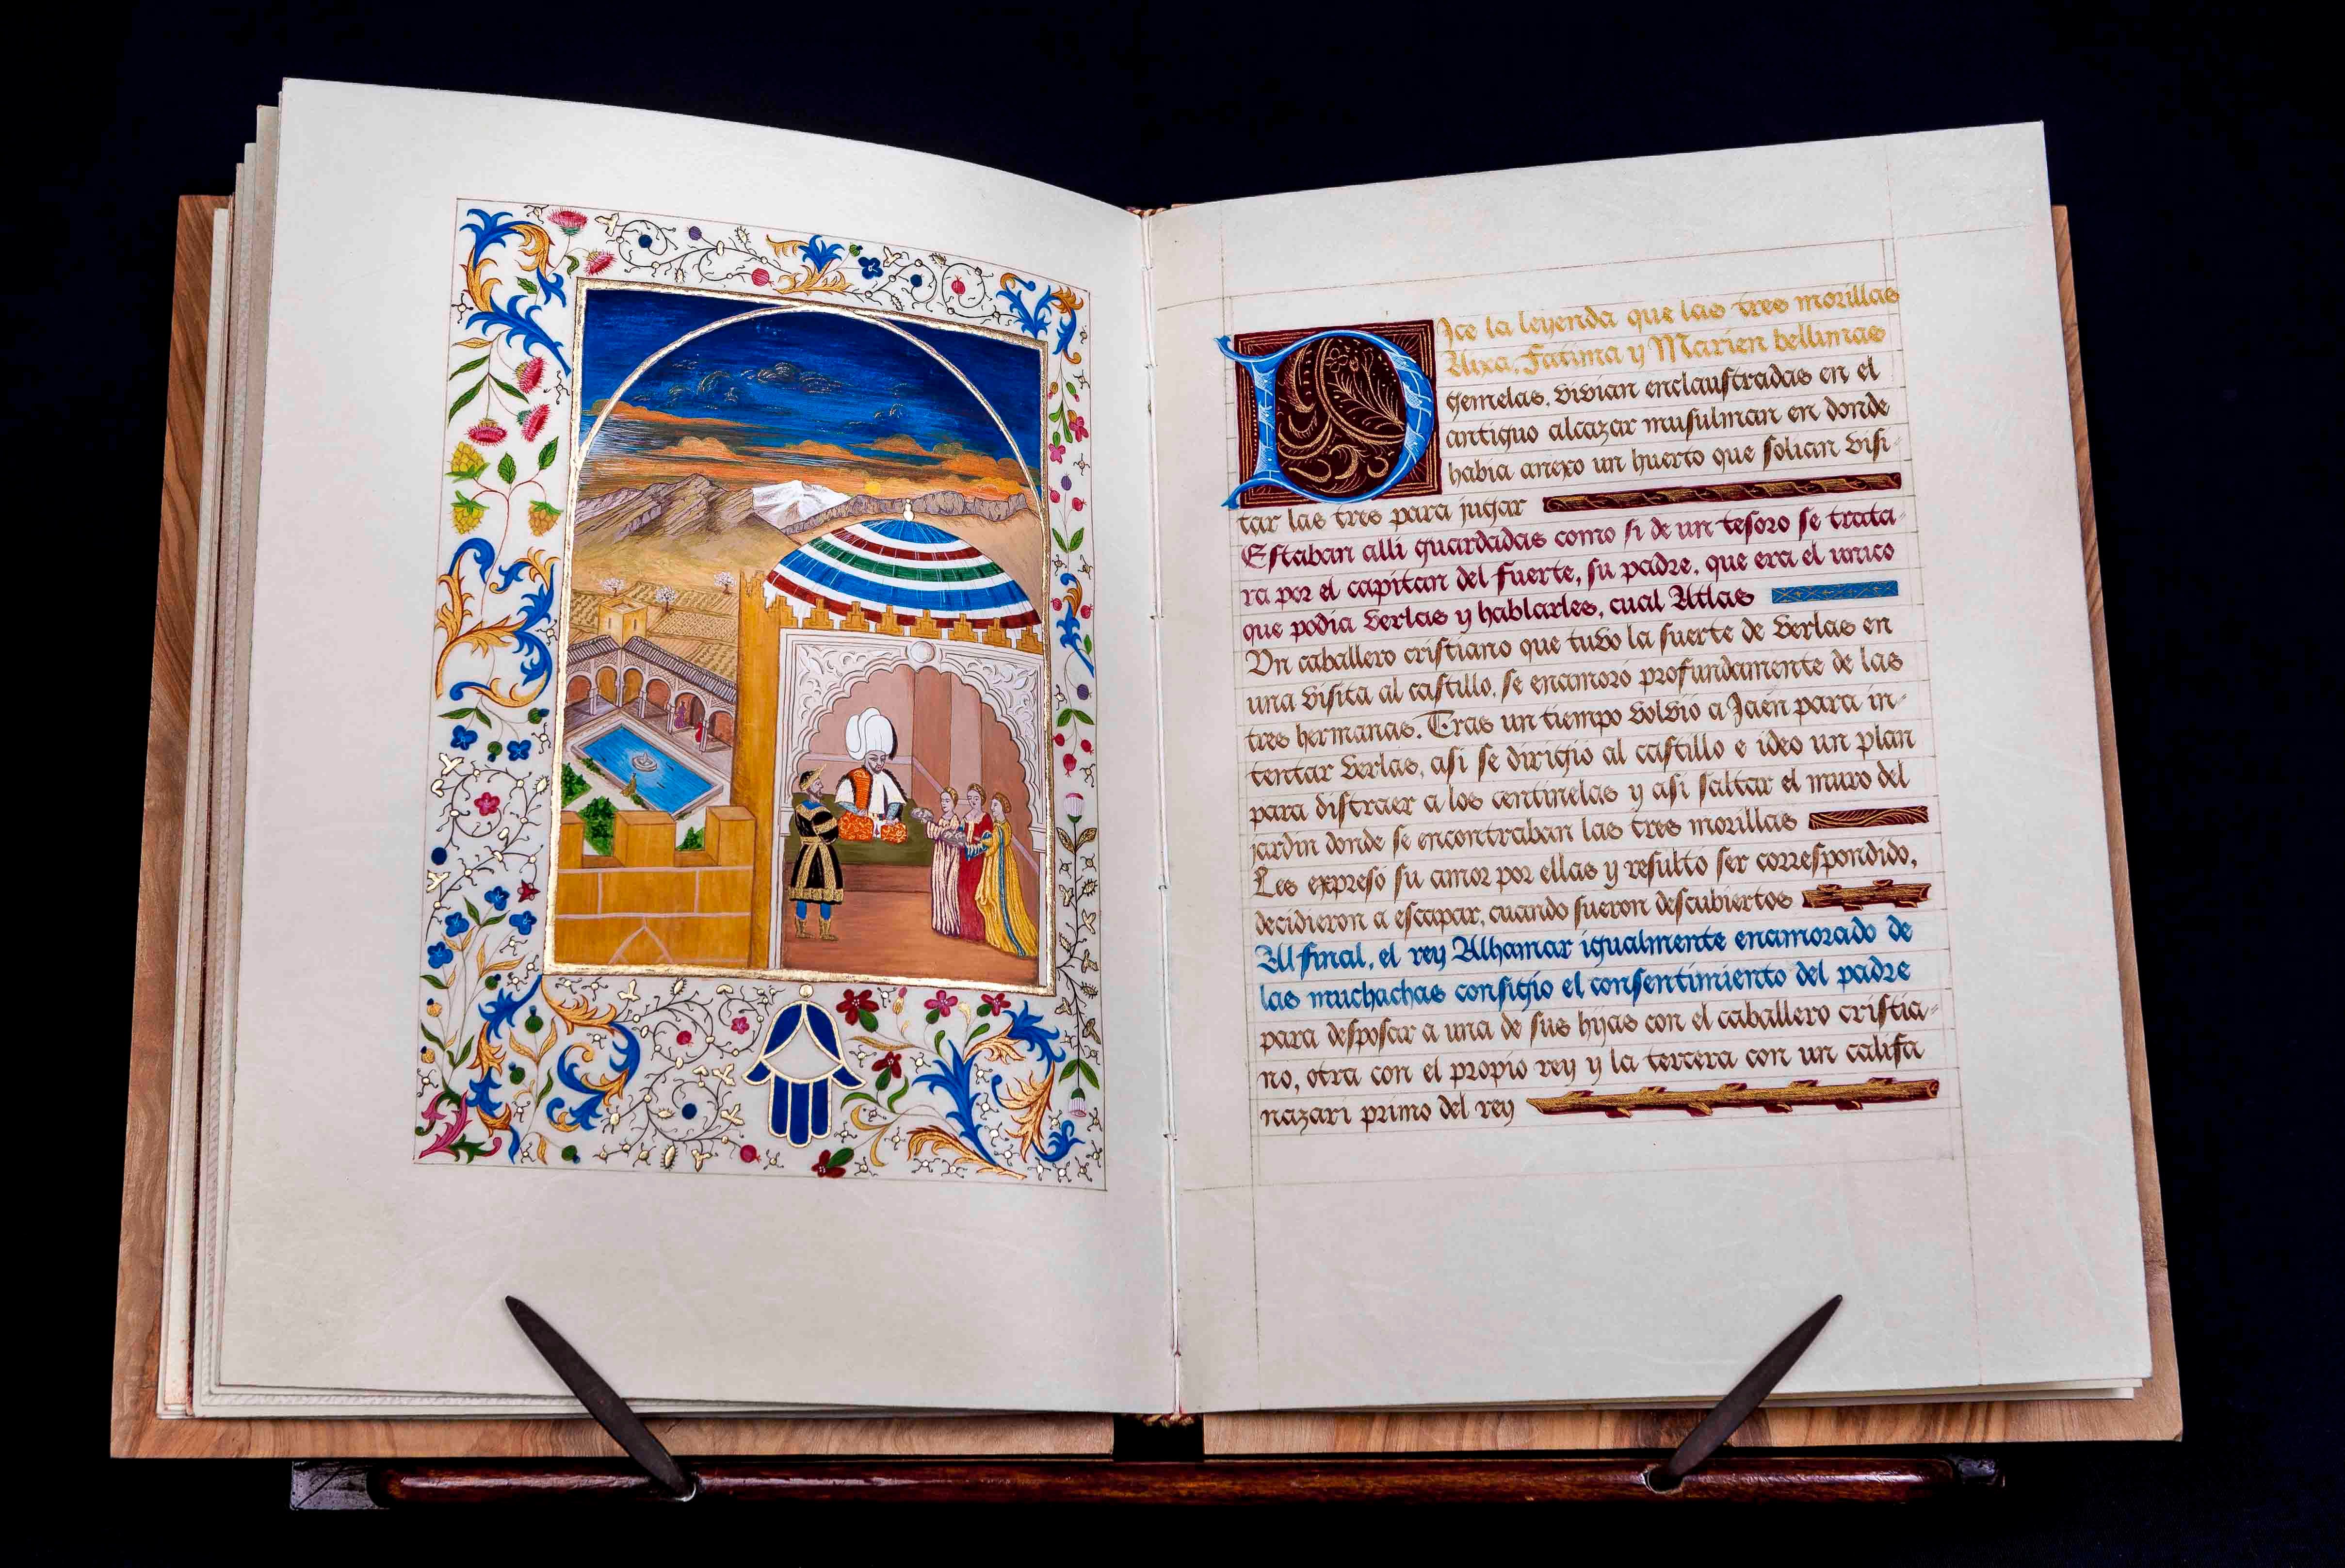 DIce la leyenda que las tres morillas
Aixa, Fatima y Marien bellimas
gemelas, vivian enclaustradas en el
antiguo alcazar musulman en donde
habia anexo un huerto que solian visi-
tar las tres para jugar
Estaban alli guardadas como si de un tesoro se trata-
ra por el capitan del fuerte, su padre, que era el unico
que podia verlas y hablarles, cual Atlas
Un caballero cristiano que tuvo la suerte de verlas en
una visita al castillo, se enamoró profundamente de las
tres hermanas. Tras un tiempo volvió a Jaén para in-
tentar verlas, asi se dirigio al castillo e ideo un plan
para distraer a los centinelas y asi saltar el muro del
jardin donde se encontraban las tres morillas
Les expreso su amor por ellas y resulto ser correspondido,
decidieron a escapar, cuando fueron descubiertos
Al final, el rey Alhamar igualmente enamorado de
las muchachas consigio el consentimiento del padre
para desposar a una de sus hijas con el caballero cristia-
no, otra con el propio rey y la tercera con un califa
nazari primo del rey